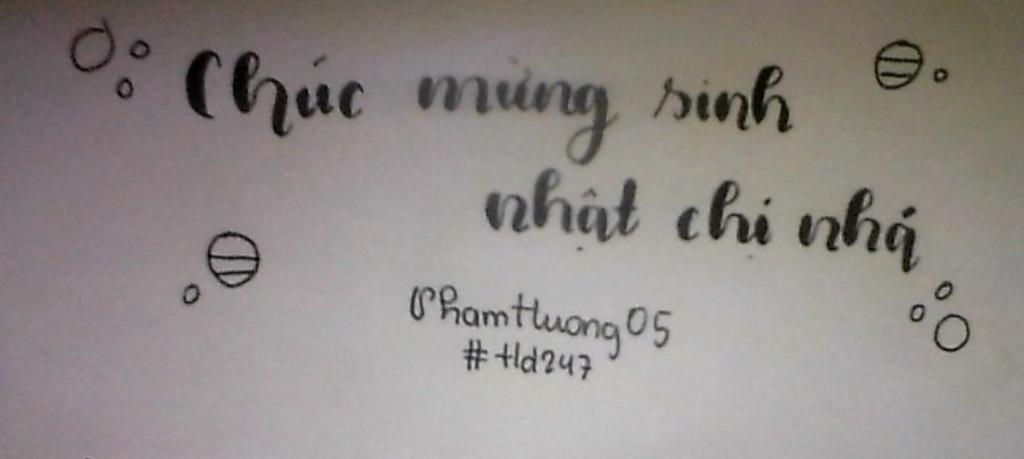 Chúc mừng sinh
nhật chị nhá
PhamHuong05
#tld247